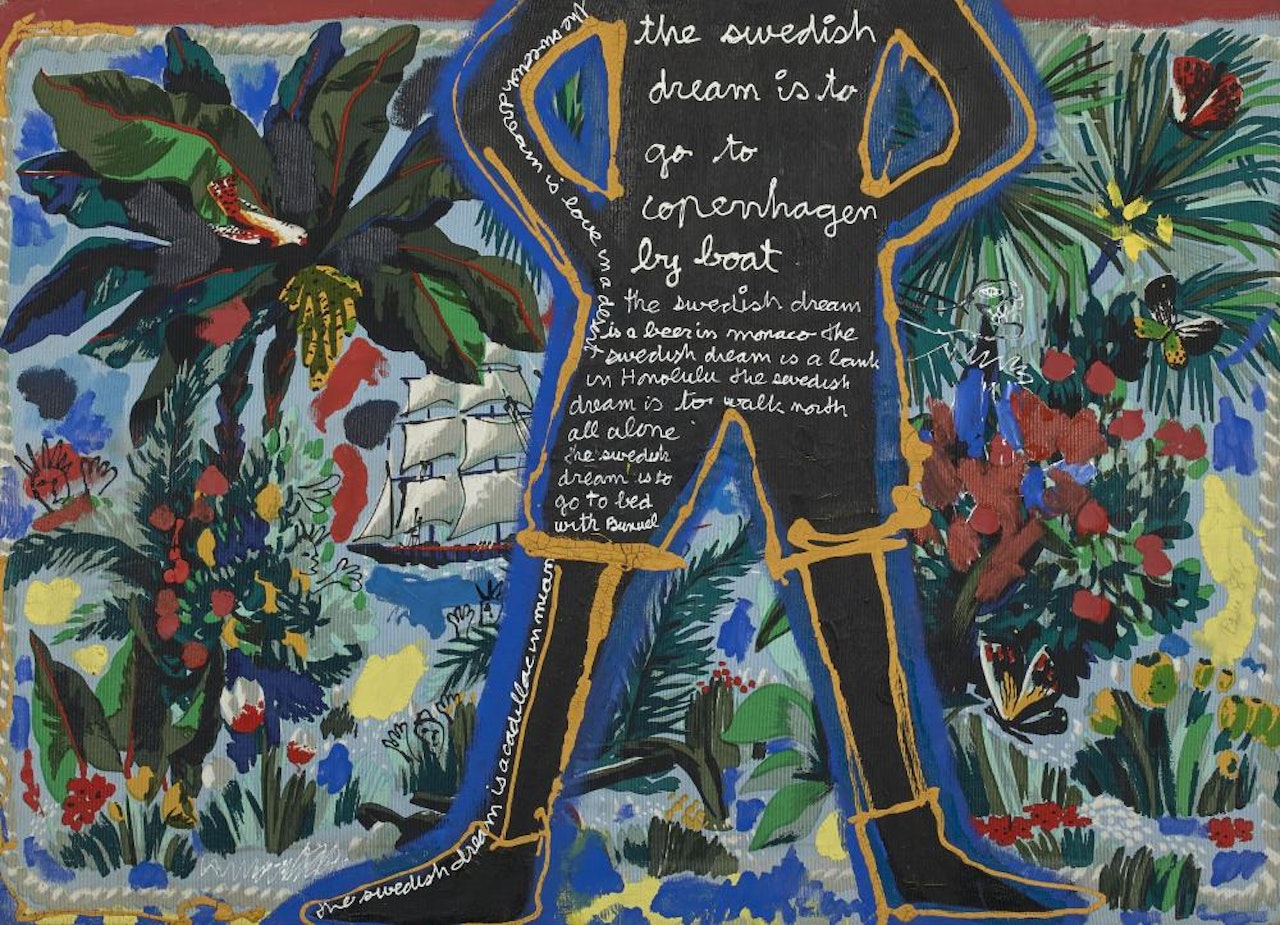 the swedish
dream is to
go to
copenhagen
by boat
the swedish dream
is a beer in monaco the
swedish dream is a bank
in Honolulu the swedish
dream is to walk north
all alone
the swedish
dream is to
go to bed
with Bunuel
the swedish dream is love in a
the swedish dream is a cadillac in